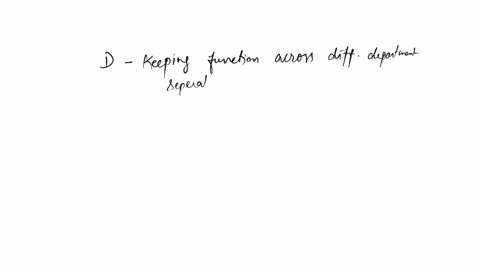 D - Keeping function across diff. department
seperat